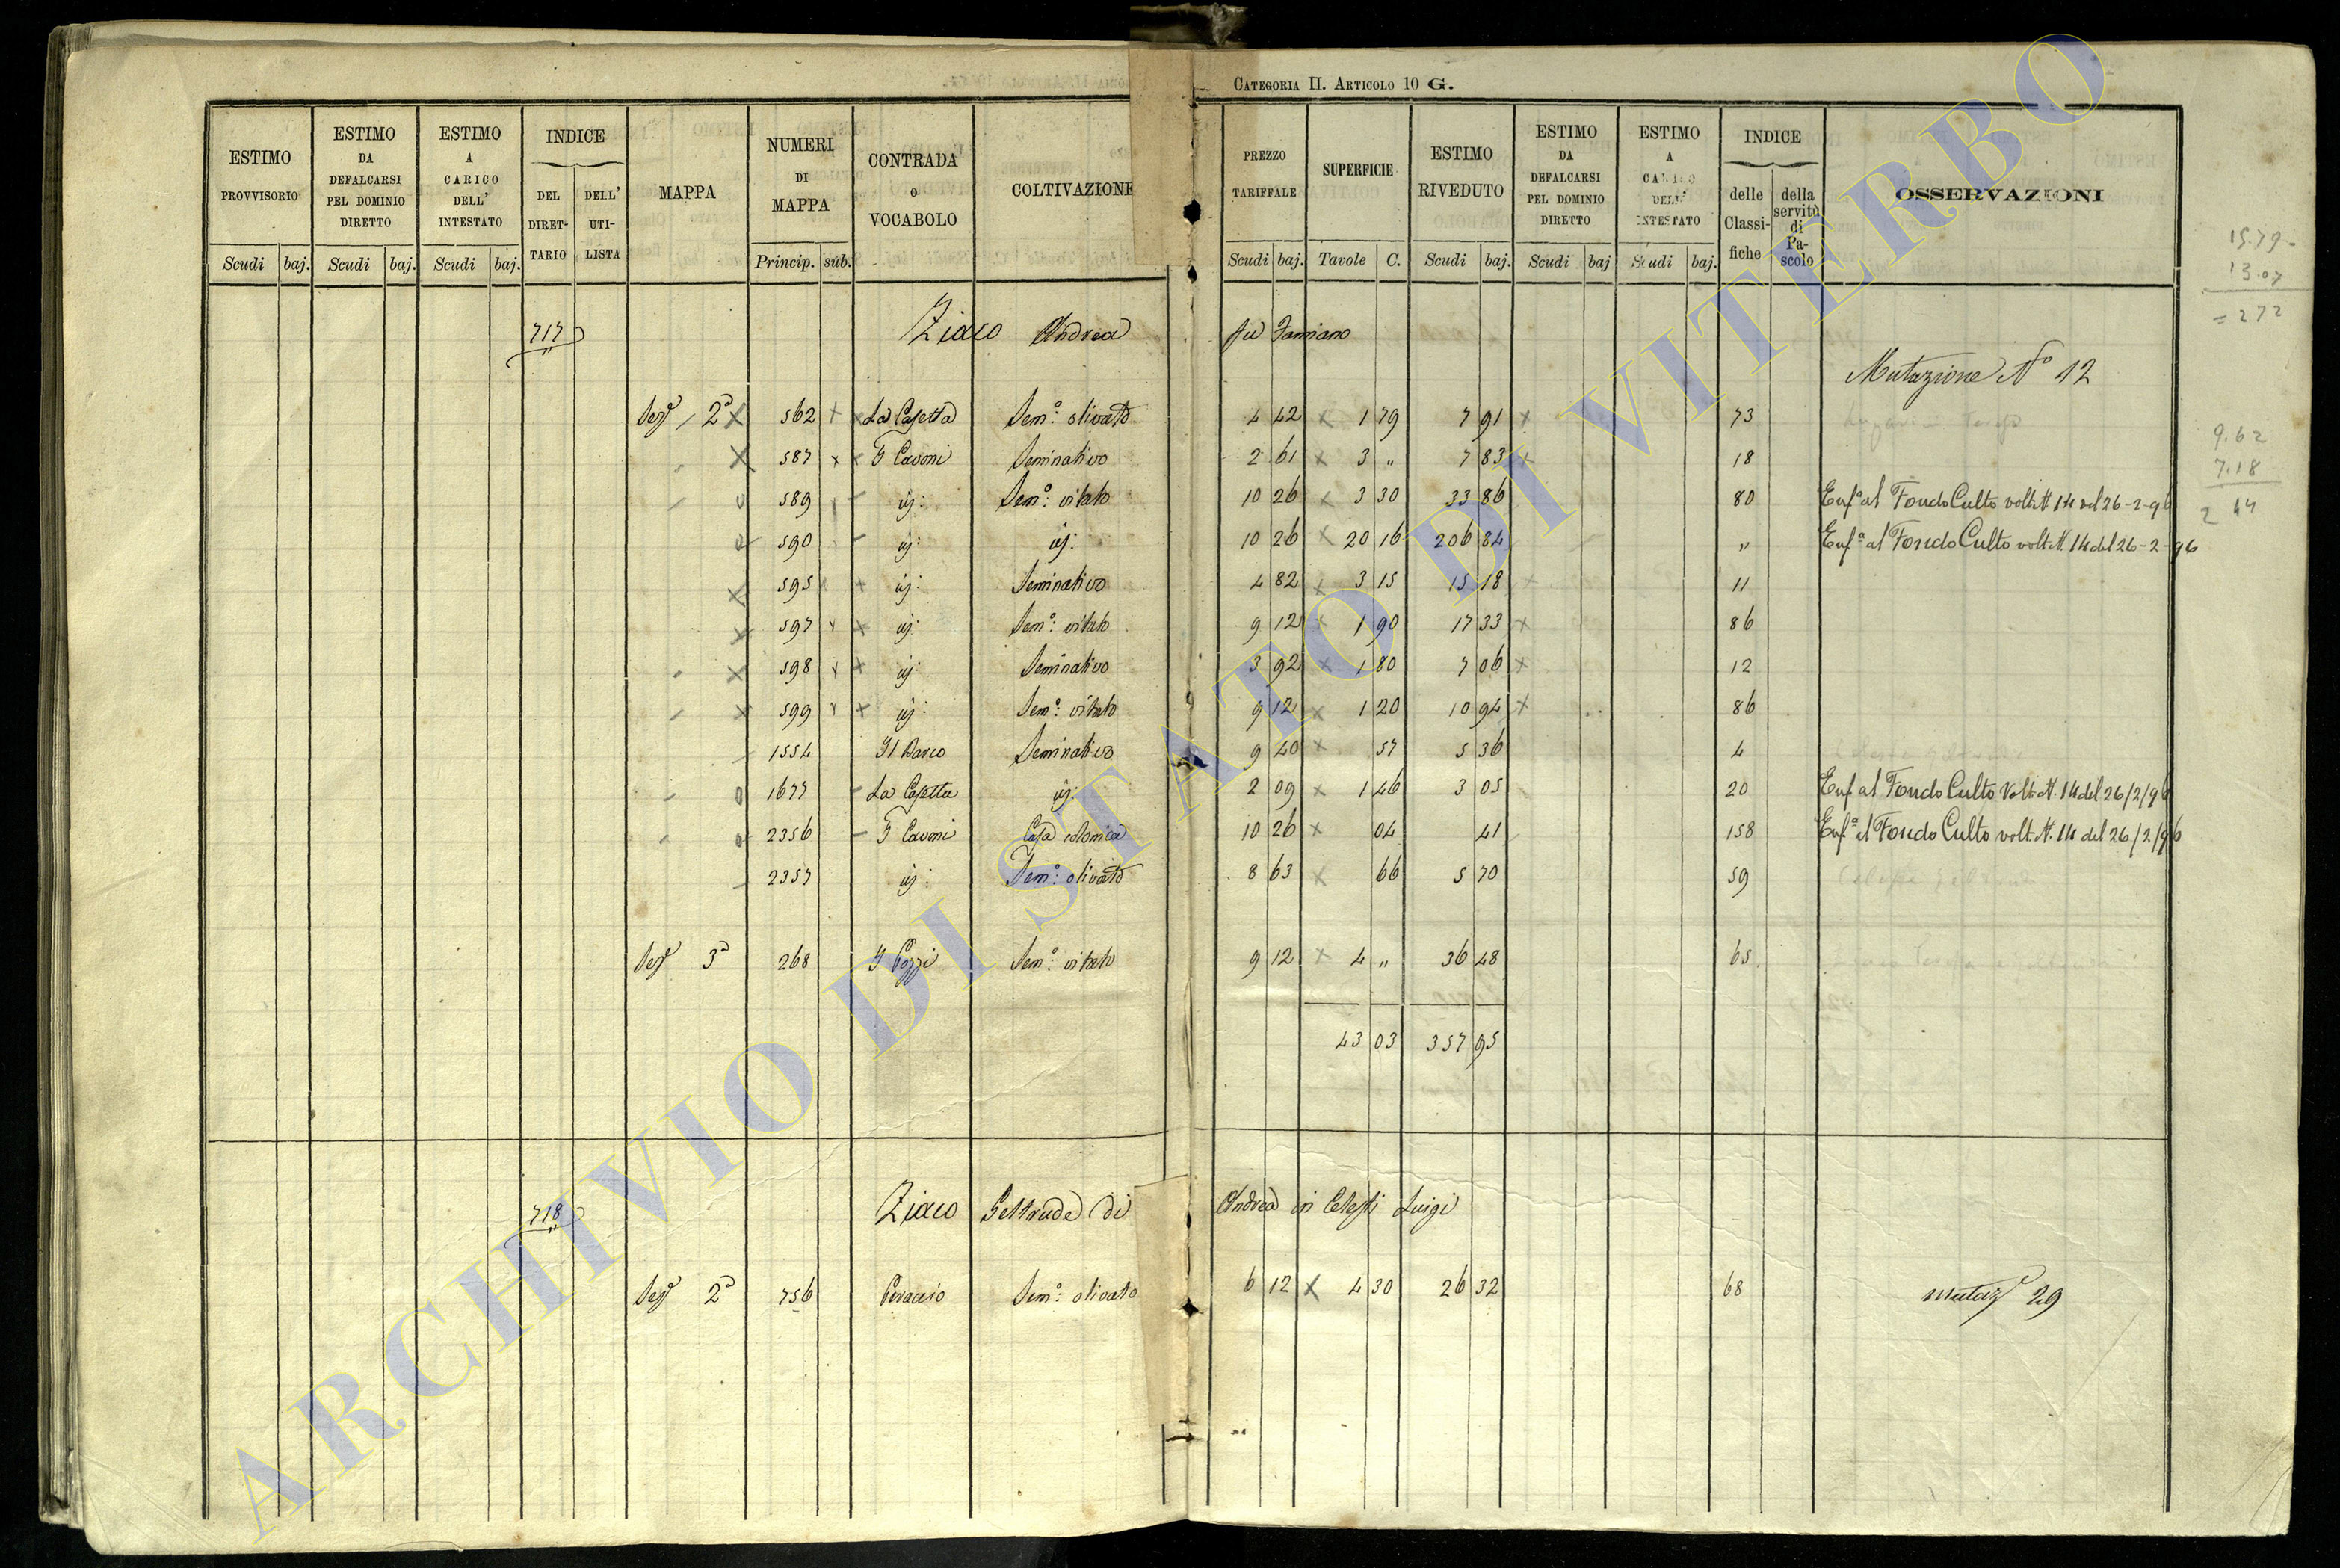 CATEGORIA II. ARTICOLO 10 G.
ESTIMO PROVVISORIO
ESTIMO DA DEFALCARSI PEL DOMINIO DIRETTO
ESTIMO A CARICO DELL' INTESTATO
INDICE
DEL DIRET-TARIO
DELL' UTI-LISTA
MAPPA
NUMERI DI MAPPA
CONTRADA o VOCABOLO
COLTIVAZIONE
PREZZO TARIFFALE
SUPERFICIE
ESTIMO RIVEDUTO
ESTIMO DA DEFALCARSI PEL DOMINIO DIRETTO
ESTIMO A CARICO DELL' INTESTATO
INDICE
delle Classi-fiche
della servitù di Pa-scolo
OSSERVAZIONI
Scudi baj. Scudi baj. Scudi baj. Princip. sub. Scudi baj. Tavole C. Scudi baj. Scudi baj Scudi baj.
15.79
13.07
= 272
717 Ziaco Andrea fu Damiano
Mutazione No 12
Sez 2a X 562 + × La Casetta Sem.o olivato 4 42 × 1 79 7 91 + 73
X 587 × × I Cavoni Seminativo 2 61 × 3 " 7 83 + 18
9.62
7.18
2 44
o 589 - ij: Sem.o vitato 10 26 × 3 30 33 86 80 Enf.a al Fondo Culto volt. N. 14 del 26-2-96
o 590 - ij: ij: 10 26 × 20 16 206 84 " Enf.a al Fondo Culto volt. N. 14 del 26-2-96
× 595 × + ij: Seminativo 4 82 × 3 15 15 18 + 11
× 597 × + ij: Sem.o vitato 9 12 × 1 90 17 33 + 86
× 598 × + ij: Seminativo 3 92 × 1 80 7 06 + 12
× 599 × + ij: Sem.o vitato 9 12 × 1 20 10 94 + 86
1554 Il Barco Seminativo 9 40 × 57 5 36 4
o 1677 - La Casetta ij: 2 09 × 1 46 3 05 20 Enf al Fondo Culto Volt. N. 14 del 26/2/96
o 2356 - I Cavoni Casa colonica 10 26 × 04 41 158 Enf.a al Fondo Culto volt. N. 14 del 26/2/96
2357 ij: Sem.o olivato 8 63 × 66 5 70 59
Sez 3a 268 I Pozzi Sem.o vitato 9 12 × 4 " 36 48 65
43 03 357 95
718 Ziaco Geltrude di Andrea in Celesti Luigi
Sez 2a 756 Sem.o olivato 6 12 × 4 30 26 32 68 Mutaz 29
ARCHIVIO DI STATO DI VITERBO